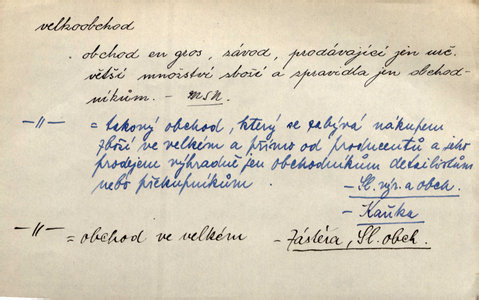 velkoobchod
. obchod en gros, závod, prodávající jen urč.
větší množství zboží a spravidla jen obchod-
níkům. - MSN.
-11- = takový obchod, který se zabývá nákupem
zboží ve velkém a přímo od producentů a jeho
prodejem výhradně jen obchodníkům detailistům
nebo překupníkům. - Sl. výr. a obch.
- Kaňka
-11- = obchod ve velkém - Zástěra, Sl. obch.